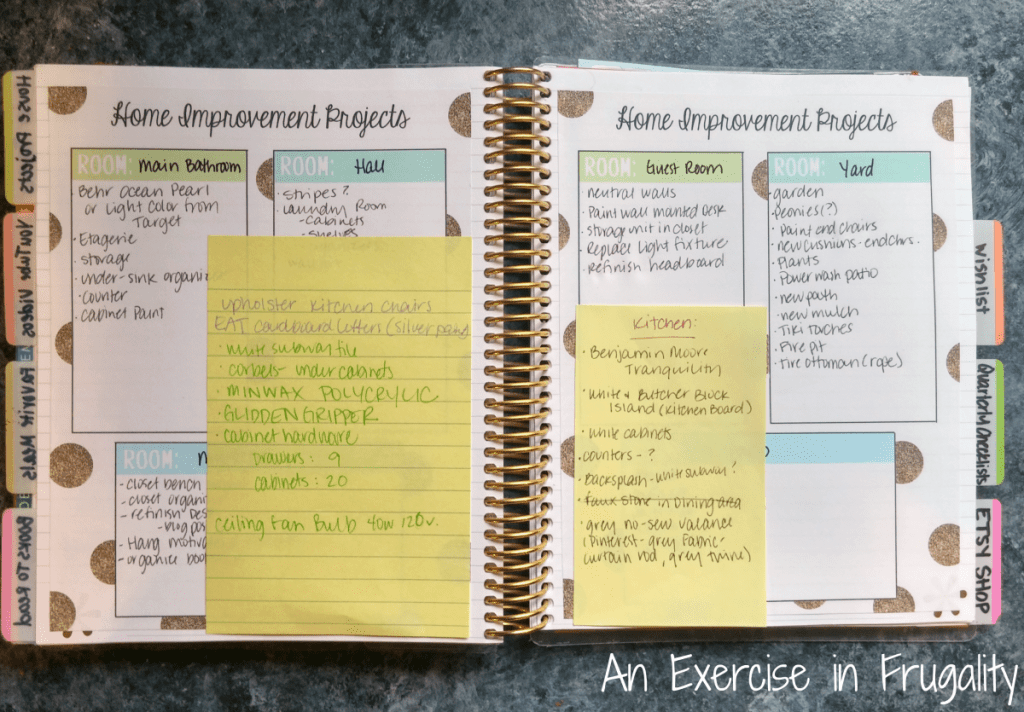 Home Improvement Projects
ROOM: Main Bathroom
Behr Ocean Pearl
or Light Color from
Target
· Etagerie
· storage
· under-sink organiz
· counter
· cabinet Paint
ROOM: Hall
· stripes?
· Laundry Room
- Cabinets
- shelves
upholster kitchen chairs
EAT cardboard letters (silver paint)
· white subway tile
· corbels- under cabinets
· MINWAX POLYCRYLIC
· GLIDDEN GRIPPER
· cabinet hardware
drawers: 9
cabinets: 20
ceiling Fan Bulb 40w 120v.
ROOM:
· closet bench
- closet organi
- refinish Des
- blog pos
- Hang motiva
- organize boo
Home Improvement Projects
ROOM: Guest Room
· neutral walls
· Paint wall mounted Desk
· storage unit in closet
· Replace Light fixture
· Refinish headboard
ROOM: Yard
· garden
· Peonies(?)
· Paint end chairs
· new cushions- end chrs.
· Plants
· Power wash patio
· new path
· new mulch
· Tiki Torches
· Fire pit
· Tire ottoman (rope)
Kitchen:
· Benjamin Moore
Tranquility
· White & Butcher Block
Island (Kitchen Board)
· white cabinets
· counters - ?
· Backsplash - white subway?
· Faux Stone in Dining area
· grey no-sew valance
(Pinterest- grey fabric-
curtain rod, grey twine)
House Projects
BOOKS TO READ
wishlist
Quarterly Checklists
ETSY SHOP
An Exercise in Frugality